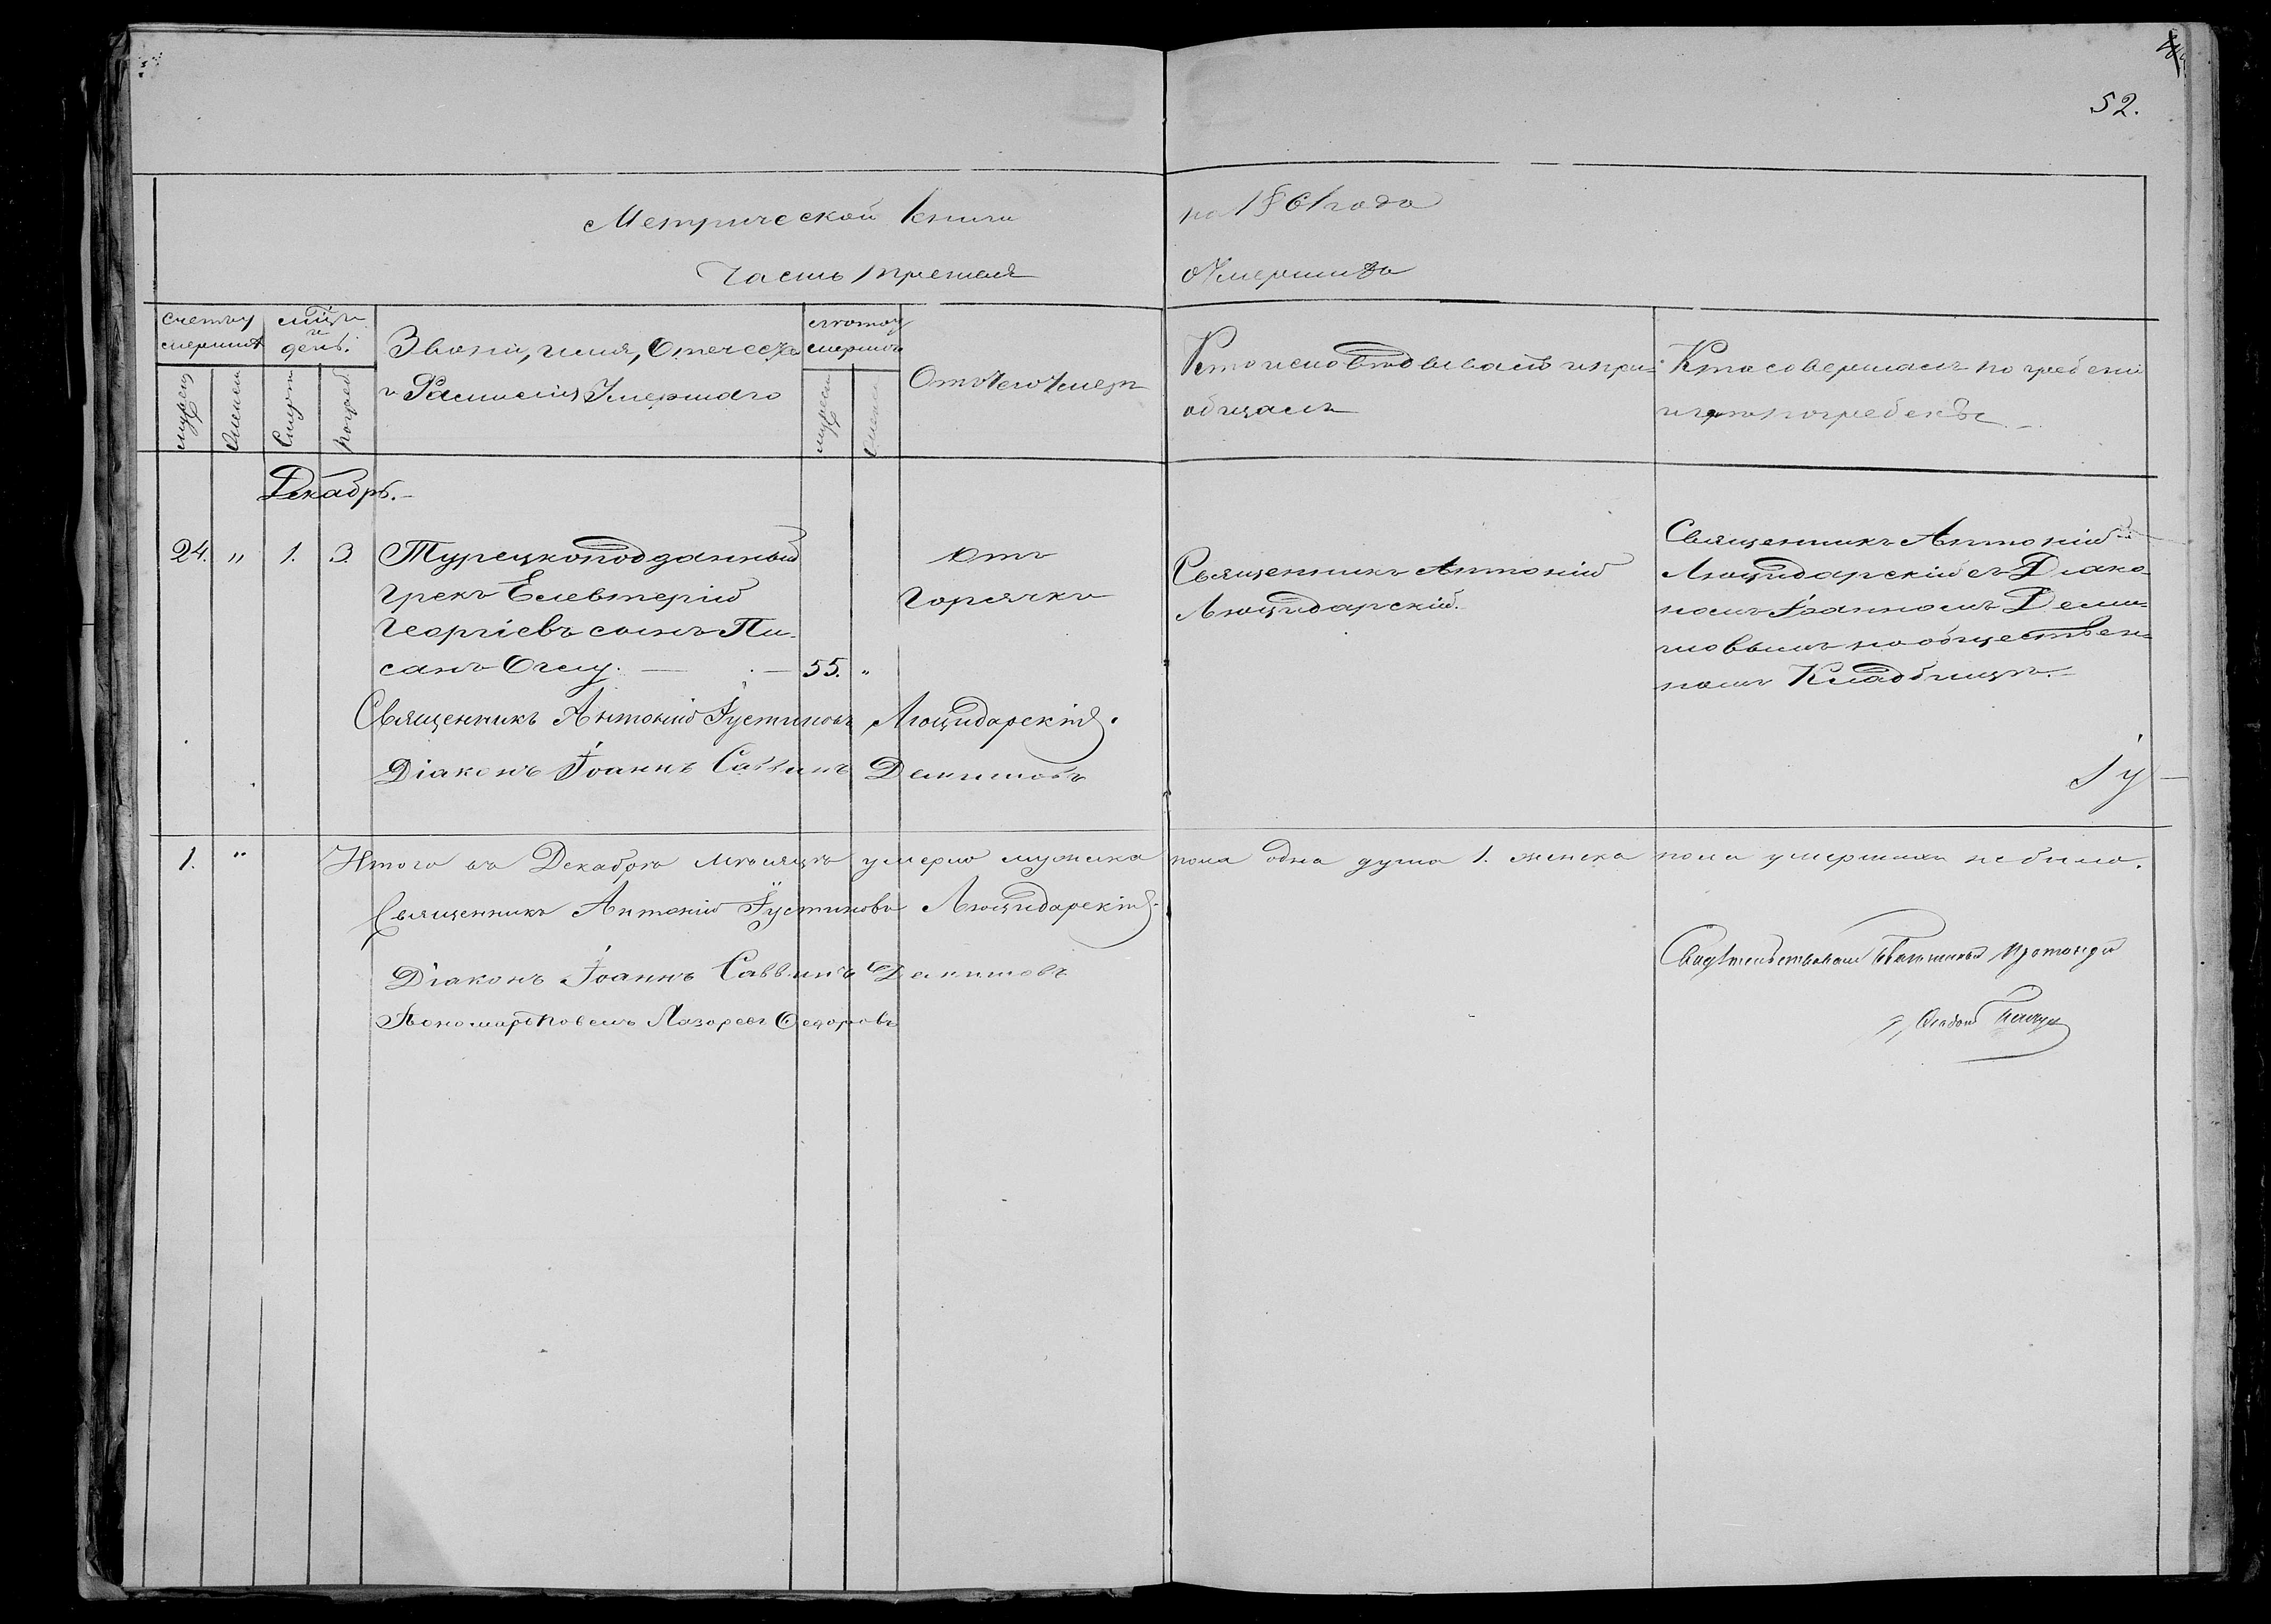 52.
Метрической книги на 1861 года
Часть третья о Умершихъ
счетъ умершихъ
мѣсяцъ и день.
Званіе, имя, Отечество
и Фамилія Умершаго
лѣта умершаго
Отъ чего Умеръ
Кто исповѣдывалъ и прі-
общалъ
Кто совершалъ погребеніе
и гдѣ погребенъ
мужеск
женск
Смерти
погреб
мужеск
женск
Декабрь.
24. " 1. 3. Турецкоподданный
грекъ Елевтерій
Георгіевъ сынъ Пи-
санъ Оглу. — 55. "
отъ
горячки
Священникъ Антоній
Люцидарскій.
Священникъ Антоній
Люцидарскій съ Діако-
номъ Іоанномъ Деми-
мовымъ на обществен-
номъ Кладбищѣ.
Священникъ Антоній Іустиновъ Люцидарскій.
Діаконъ Іоаннъ Саввинъ Демимовъ
1. " Итого въ Декабрѣ мѣсяцѣ умерло мужска пола одна душа 1. женска пола умершихъ небыло.
Священникъ Антоній Іустиновъ Люцидарскій.
Діаконъ Іоаннъ Саввинъ Демимовъ
Пономарь Павелъ Лазаревъ Федоровъ
Свидѣтельствовалъ